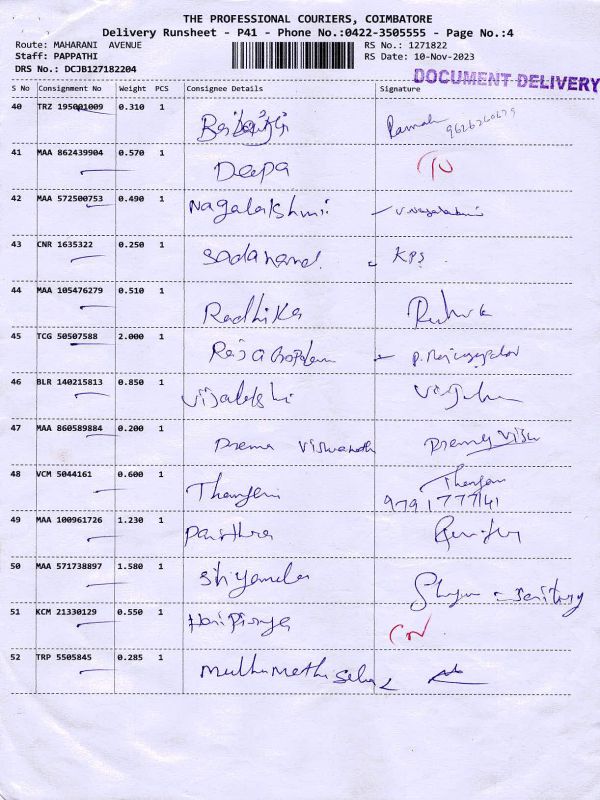 THE PROFESSIONAL COURIERS, COIMBATORE
Delivery Runsheet - P41 - Phone No.:0422-3505555 - Page No.:4
Route: MAHARANI AVENUE RS No.: 1271822
Staff: PAPPATHI RS Date: 10-Nov-2023
DRS No.: DCJB127182204
DOCUMENT DELIVERY
S No Consignment No Weight PCS Consignee Details Signature
40 TRZ 195001009 0.310 1
41 MAA 862439904 0.570 1 Deepa
42 MAA 572500753 0.490 1 Nagalakshmi
43 CNR 1635322 0.250 1 Sadanand. KPS
44 MAA 105476279 0.510 1 Radhika
45 TCG 50507588 2.000 1 Rajagopalan
46 BLR 140215813 0.850 1
47 MAA 860589884 0.200 1 Prema Viswanath Prema Visw
48 VCM 5044161 0.600 1
9791777141
49 MAA 100961726 1.230 1 Pavithra
50 MAA 571738897 1.580 1 Shyamala
51 KCM 21330129 0.550 1 Haripriya
52 TRP 5505845 0.285 1